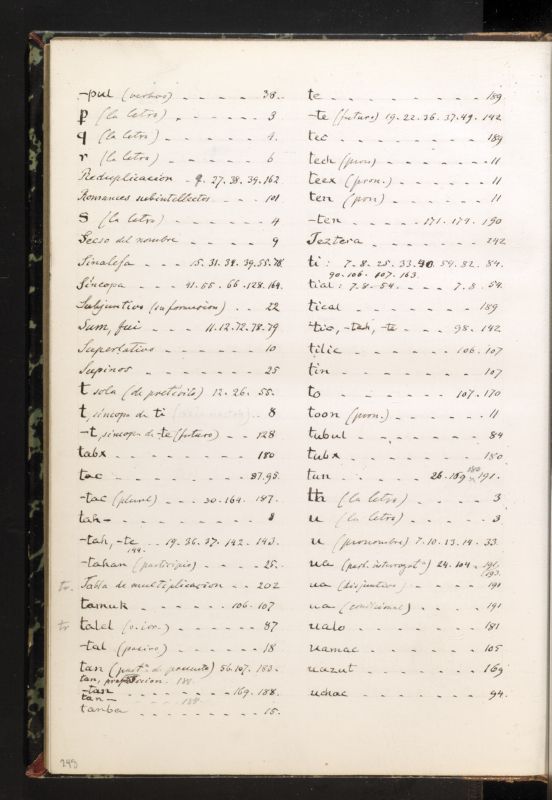 -pul (verbos) - - - - - 38.
p (la letra) - - - - - 3
q (la letra) - - - - - 4.
r (la letra) - - - - - 6
Reduplicacion - 9. 27. 38. 39. 162
Romances subintellectos - - - 101
s (la letra) - - - - - 4
Secso del nombre - - - - 9
Sinalefa - - - 15. 31. 38. 39. 55. 78.
Síncopa - - - 41. 55. 66. 128. 164.
Subjuntivo (su formacion) - - 22
Sum, fui - - - 11. 12. 72. 78. 79
Superlativo - - - - - 10
Supinos - - - - - 25
t sola (de pretérito) 12. 26. 55.
t, síncopa de ti - - 8
-t, síncopa de -te (futuro) - - 128
tabx - - - - - 180
tac - - - - - 87. 95.
-tac (plural) - - - 30. 164. 187.
tah- - - - - - 8
-tah, -te - - 19. 36. 37. 142. 143.
144.
-tahan (participio) - - - 25.
tr. Tabla de multiplicacion - - - 202
tamuk - - - - - 106. 107
tr talel - - - - 87
-tal (pasivo) - - - - 18
tan (part.ª de presente) 56. 107. 183.
tan, preposicion 188.
-tan - - - - - 169. 188.
tan- - - - 188
tanba - - - - - 15.
te - - - - - 189
-te (futuro) 19. 22. 36. 37. 49. 142
tec - - - - - 189
tech (pron) - - - - - 11
teex (pron.) - - - - - 11
ten (pron) - - - - - 11
-ten - - - - 171. 179. 190
Teztera - - - - - 242
ti : 7. 8. 25. 33. 40. 54. 82. 84.
90. 106. 107. 163.
tial : 7. 8. 54. - - - 7. 8. 54.
tical - - - - - 189
-tic, -tah, -te - - - 98. 142
tilic - - - - - 106. 107
tin - - - - - 107
to - - - - - 107. 170
toon (pron.) - - - - - 11
tubul - - - - - 84
tubx - - - - - 180
tun - - - - 26. 189. 191.
180
th (la letra) - - - - 3
u (la letra) - - - - 3
u (pronombre) 7. 10. 13. 14. 33.
ua (part. interrogat.ª) 24. 104. 191.
193.
ua (disjuntiva) - - - 191
ua (condicional) - - - 191
ualo - - - - - 181
uamac - - - - - 105
uazut - - - - - 169
uchac - - - - - 94.
243